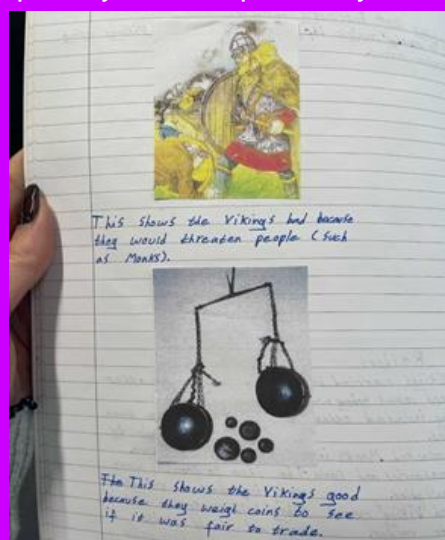 This shows the Vikings bad because
they would threaten people (such
as Monks).
The This shows the Vikings good
because they weigh coins to see
if it was fair to trade.